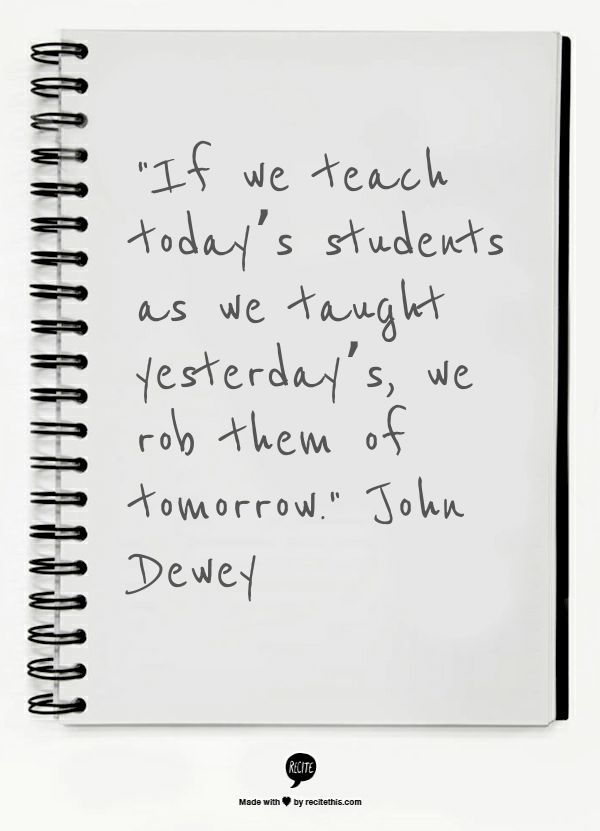 "If we teach
today's students
as we taught
yesterday's, we
rob them of
tomorrow." John
Dewey
RECITE
Made with ♥ by recitethis.com